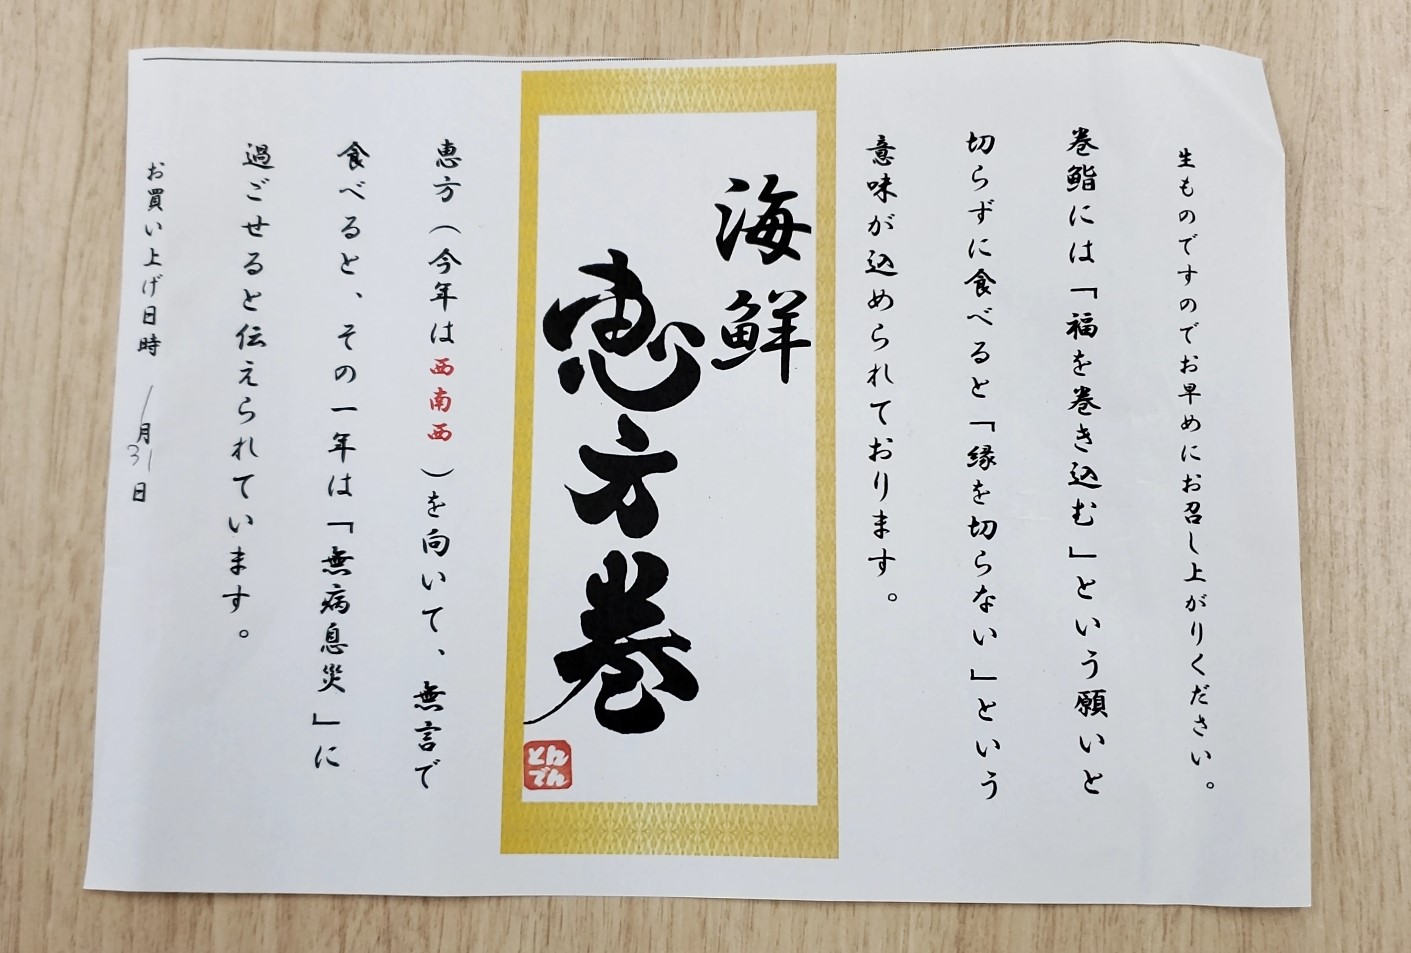 生ものですのでお早めにお召し上がりください。
巻鮨には「福を巻き込む」という願いと
切らずに食べると「縁を切らない」という
意味が込められております。
海鮮
恵方巻
とんでん
恵方（今年は西南西）を向いて、無言で
食べると、その一年は「無病息災」に
過ごせると伝えられています。
お買い上げ日時 1月31日